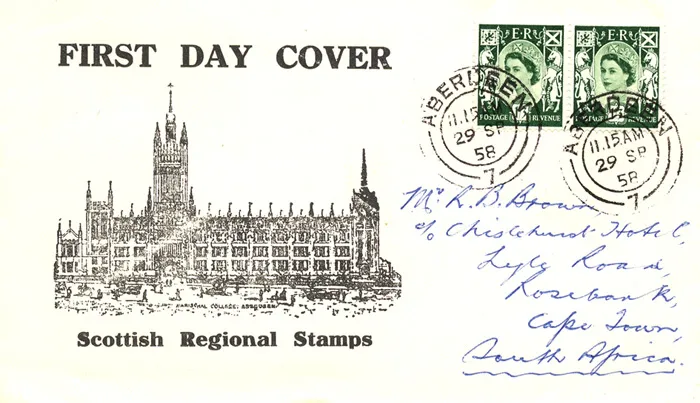 FIRST DAY COVER
E R
E R
POSTAGE REVENUE
POSTAGE REVENUE
ABERDEEN
11.15 AM
29 SP
58
7
ABERDEEN
11.15 AM
29 SP
58
7
Mr R. B. Brown,
c/o Chislehurst Hotel,
Lyle Road,
Rosebank,
Cape Town,
South Africa.
MARISCHAL COLLEGE: ABERDEEN
Scottish Regional Stamps